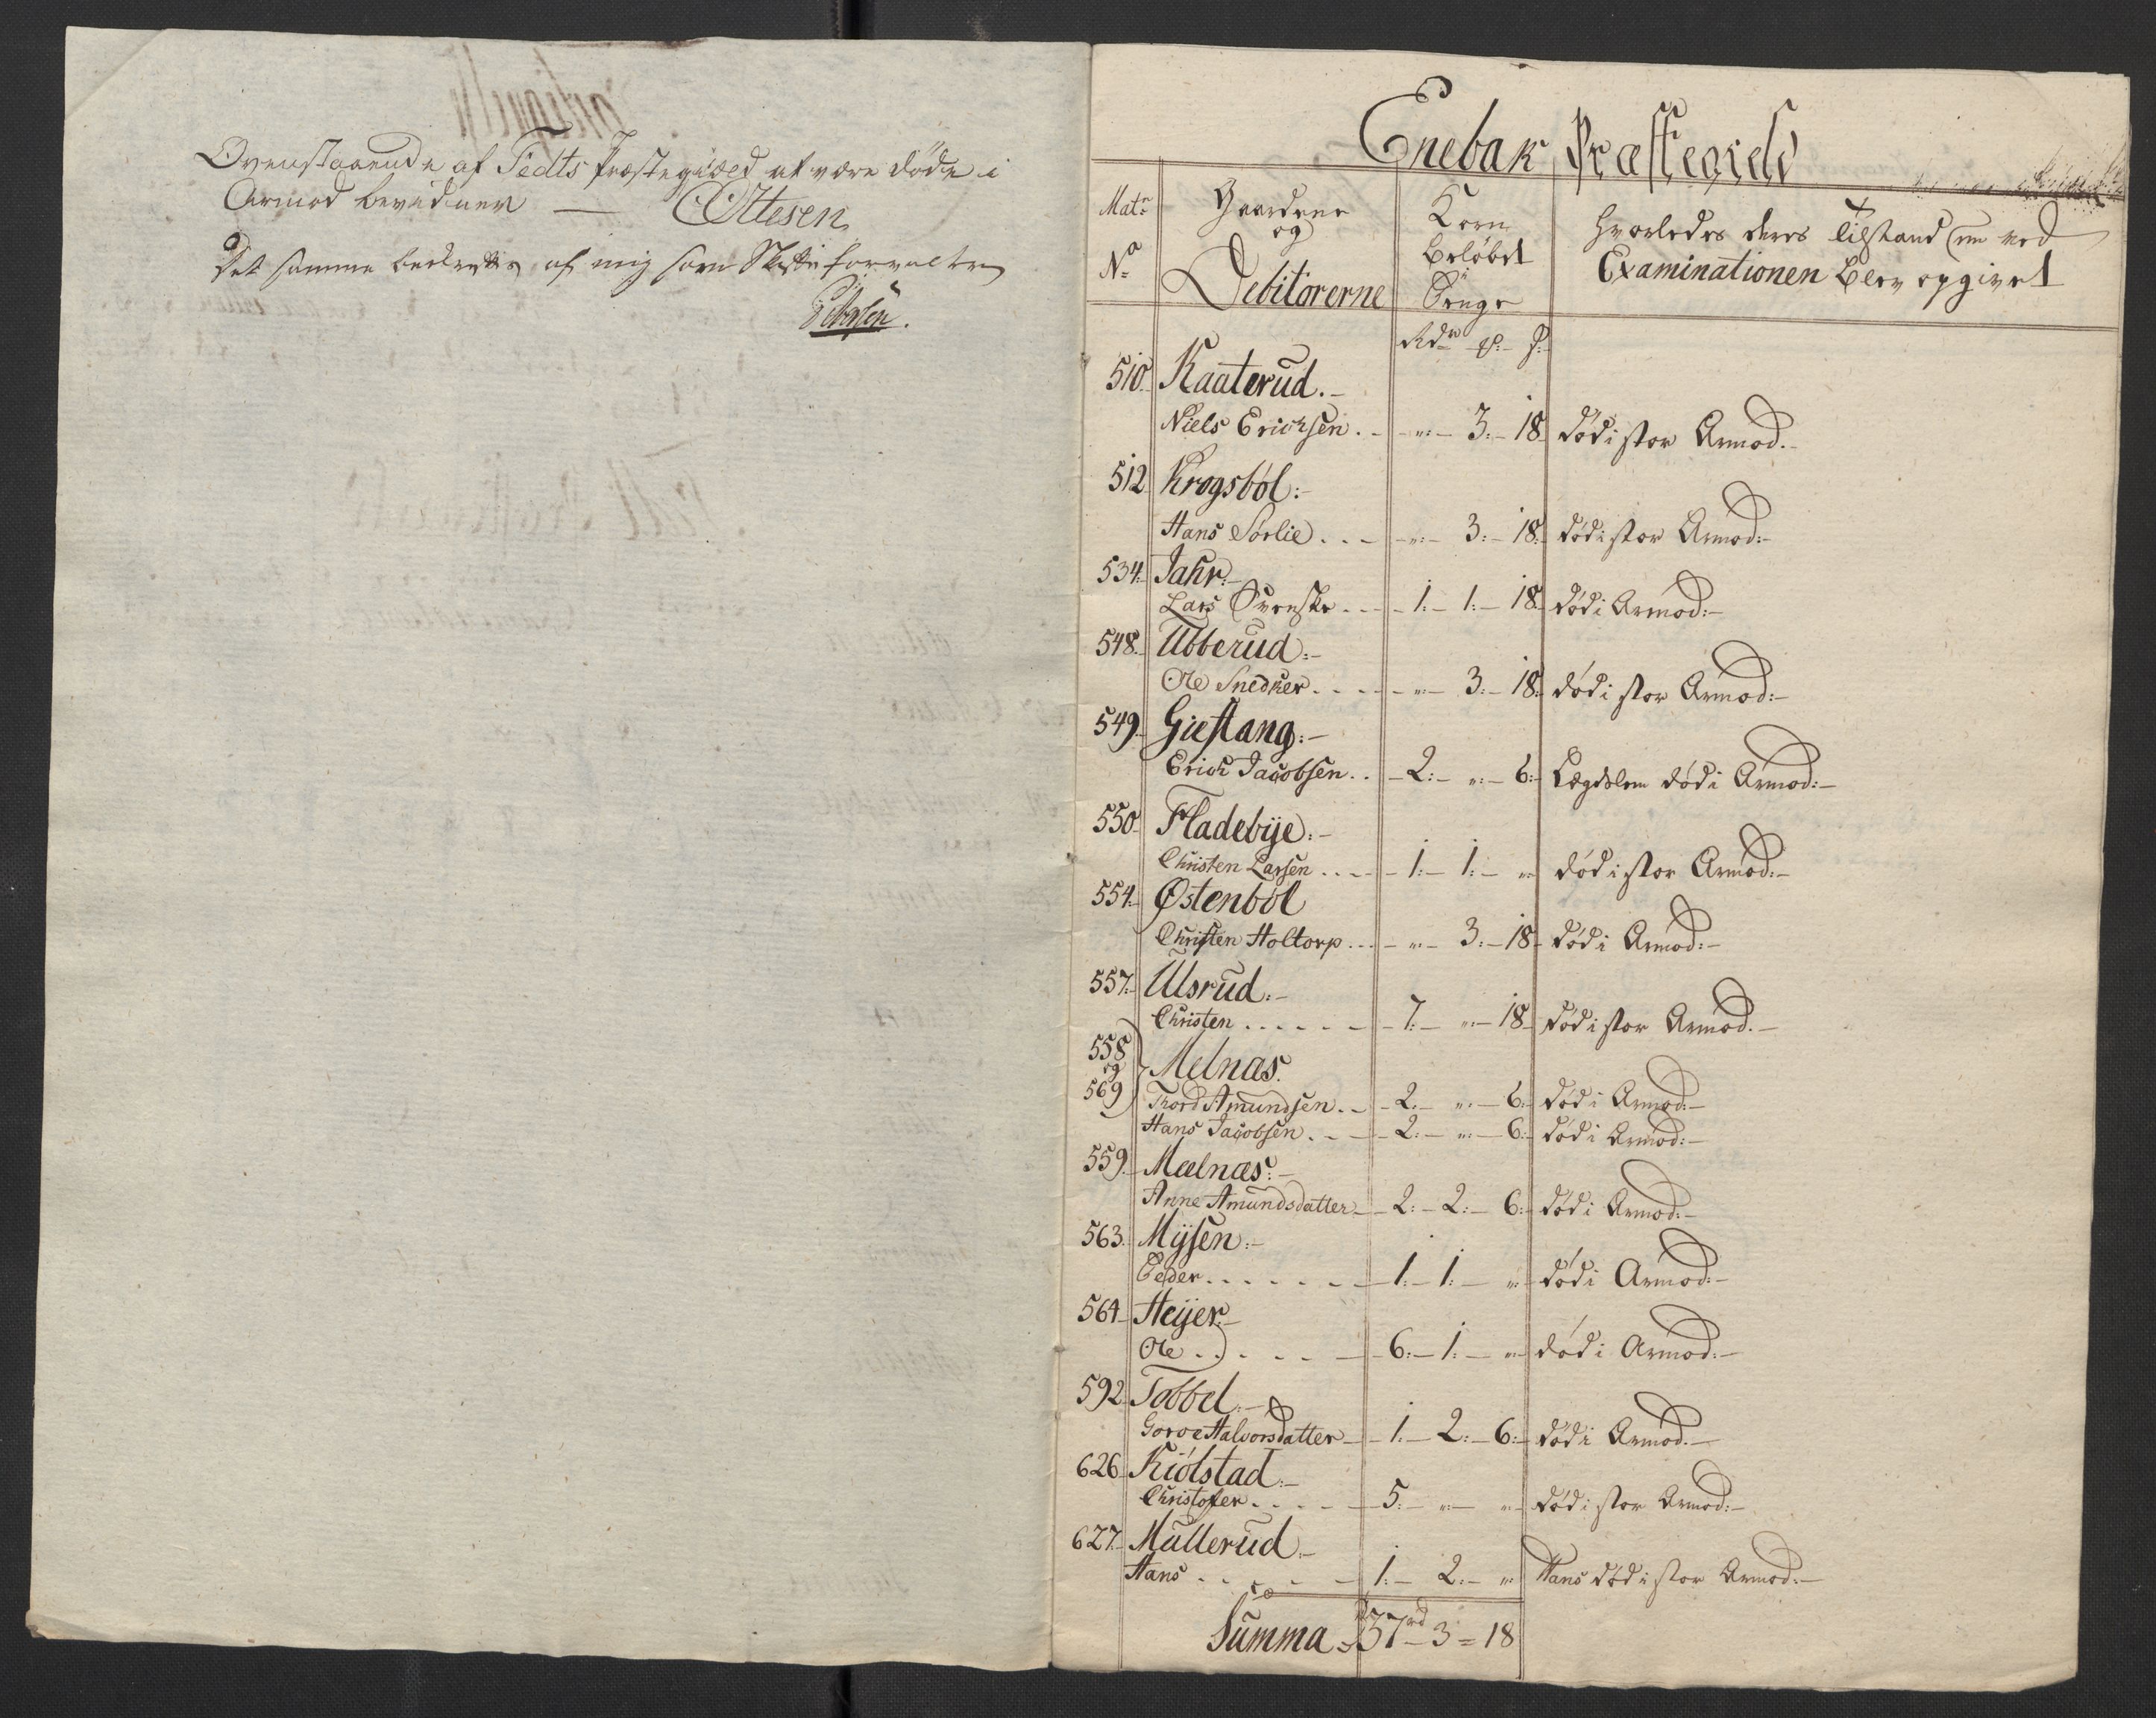 Ovenstaaende af Fedts Præstegield at være døde i
Armod bevidner — Ottesen
Det samme bekræfter af mig som Skifteforvalter
Enebak Præstegield
Matr: No
Gaardene og Debitorerne
Korn beløbet i Penge
Hvorledes deres Tilstand nu ved Examinationen blev opgivet
Rdr
510. Kaaterud.-
Niels Erichsen . - - ":- 3:- 18 død i stor Armod.-
512 Krogsból:-
Hans Sørlie . . - - ":- 3:- 18:- død i stor Armod:-
534:- Jahr:-
Lars Svenske . . - - 1:- 1:- 18:- død i Armod:-
548:- Ubberud:-
Ole Snedker . . . . - ":- 3:- 18:- død i stor Armod:-
549:- Giestang:-
Erich Jacobsen . . - 2:- ":- 6:- Lægdslem død i Armod:-
550:- Fladebÿe:-
Christen Larsen . . . - 1:- 1:- " død i stor Armod:-
554:- Østenból
Christen Holtorp . . . - ":- 3:- 18- død i Armod:-
557:- Ulsrud:-
Christen . . . . . . - - 7:- ":- 18- død i stor Armod.-
558 og 569 Melnæs.
Thord Amundsen . . - 2:- ":- 6:- død i Armod:-
Hans Jacobsen . - - 2:- ":- 6:- død i Armod:-
559:- Mælnæs:-
Anne Amundsdatter - 2:- 2:- 6:- død i Armod:-
563. Mÿsen:-
Peder . . . . . . - - 1:- 1:- " død i Armod:-
564- Heÿer:-
Ole . . . . - - 6:- 1:- " død i Armod:-
592 Tobbel:-
Goroe Halvorsdatter - 1:- 2:- 6:- død i Armod:-
626- Kiólstad:-
Christofer . . . . - 5:- ":- " død i stor Armod:-
627- Mullerud:-
Hans . . . . . - 1:- 2:- " Hans død i stor Armod:-
Summa 37 rd - 3 = 18